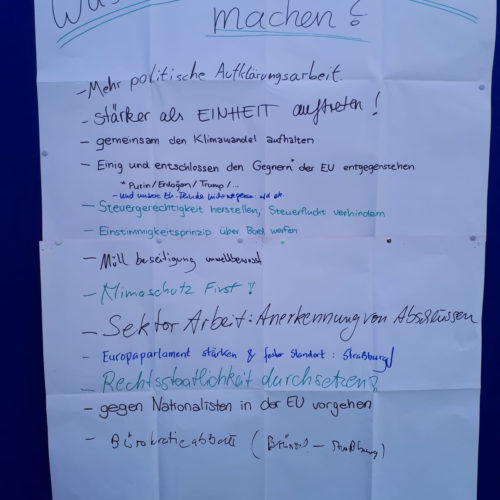 Was
machen?
- Mehr politische Aufklärungsarbeit.
- stärker als EINHEIT auftreten!
- gemeinsam den Klimawandel aufhalten
- Einig und entschlossen den Gegnern* der EU entgegenstehen
* Putin/Erdoğan/Trump/...
- Und unsere EU-Freunde
- Steuergerechtigkeit herstellen, Steuerflucht verhindern
- Einstimmigkeitsprinzip über Bord werfen
- Müll beseitigung umweltbewusst
- Klimaschutz First!
- Sektor Arbeit: Anerkennung von Abschlüssen
- Europaparlament stärken & fester Standort: Straßburg
- Rechtsstaatlichkeit durchsetzen?
- gegen Nationalisten in der EU vorgehen
- Bürokratieabbau (Brüssel - Straßburg)